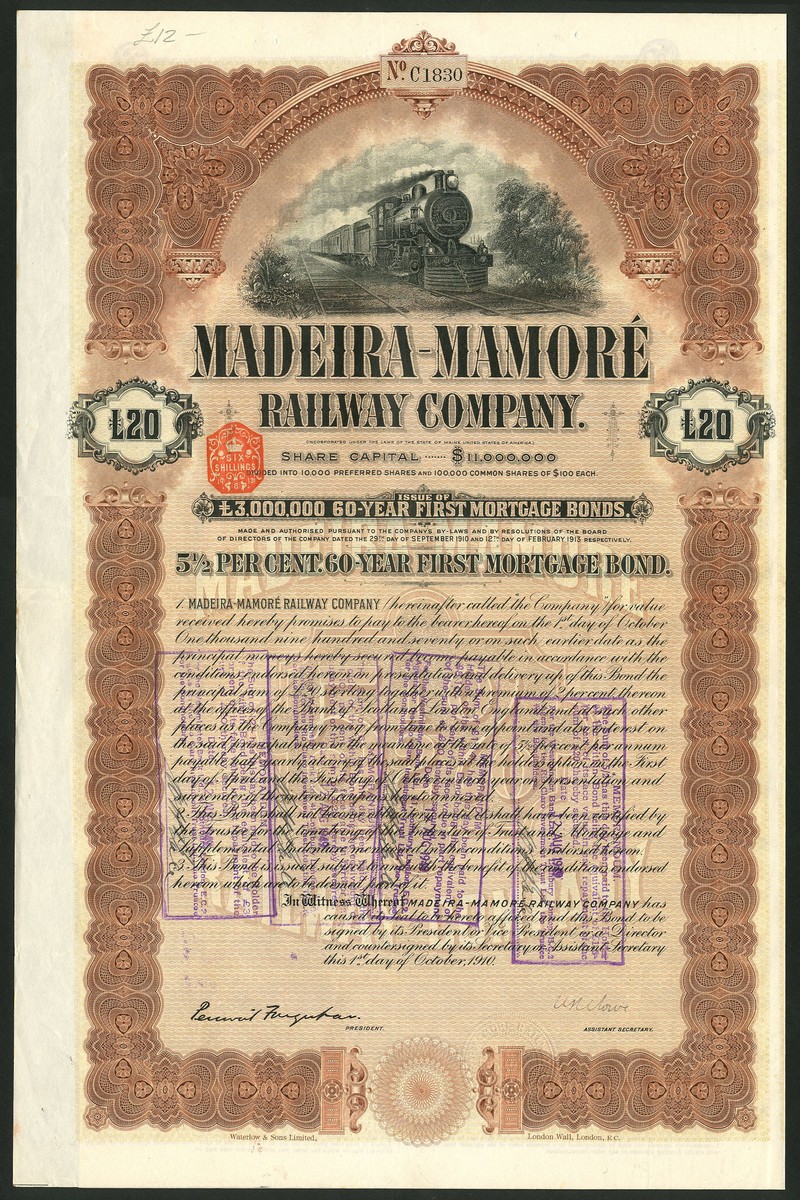 £12 –
Nº C1830
MADEIRA-MAMORÉ
RAILWAY COMPANY.
£20
£20
(INCORPORATED UNDER THE LAWS OF THE STATE OF MAINE UNITED STATES OF AMERICA.)
SIX
SHILLINGS
SHARE CAPITAL ...... $11,000,000
DIVIDED INTO 10,000 PREFERRED SHARES AND 100,000 COMMON SHARES OF $100 EACH.
ISSUE OF
£3,000,000 60-YEAR FIRST MORTGAGE BONDS.
MADE AND AUTHORISED PURSUANT TO THE COMPANY'S BY-LAWS AND BY RESOLUTIONS OF THE BOARD
OF DIRECTORS OF THE COMPANY DATED THE 29TH DAY OF SEPTEMBER 1910 AND 12TH DAY OF FEBRUARY 1913 RESPECTIVELY.
5½ PER CENT. 60-YEAR FIRST MORTGAGE BOND.
1. MADEIRA-MAMORÉ RAILWAY COMPANY (hereinafter called "the Company") for value
received hereby promises to pay to the bearer hereof on the 1st day of October
One thousand nine hundred and seventy or on such earlier date as the
principal moneys hereby secured become payable in accordance with the
conditions endorsed hereon on presentation and delivery up of this Bond the
principal sum of £20 sterling together with a premium of 2 per cent. thereon
at the offices of the Bank of Scotland London England and at such other
places as the Company may from time to time appoint and also interest on
the said principal sum in the meantime at the rate of 5½ per cent per annum
payable half yearly at any of the said places at the holders option on the First
day of April and the First day of October in each year on presentation and
surrender of the interest coupons hereto annexed.
2. This Bond shall not become obligatory until it shall have been certified by
the Trustee for the time being of the Indenture of Trust and Mortgage and
Supplemental Indenture mentioned in the conditions endorsed hereon.
3. This Bond is issued subject to and with the benefit of the conditions endorsed
hereon which are to be deemed part of it.
In Witness Whereof MADEIRA-MAMORÉ RAILWAY COMPANY has
caused its seal to be hereto affixed and this Bond to be
signed by its President or Vice President or a Director
and countersigned by its Secretary or Assistant Secretary
this 1st day of October, 1910.
Percival Farquhar.
PRESIDENT.
ASSISTANT SECRETARY.
Waterlow & Sons Limited,
London Wall, London, E.C.